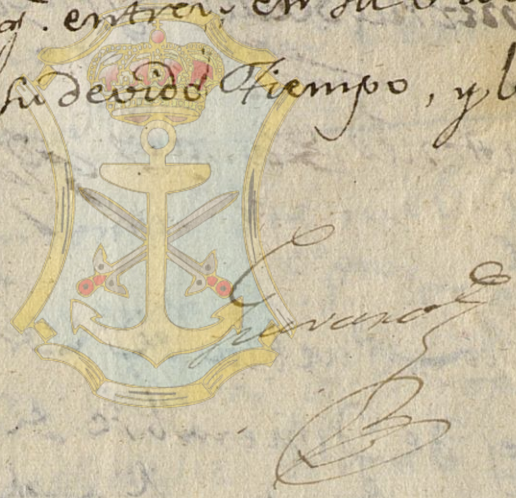 q. entren, en su
su devido Tiempo, y
Guevara